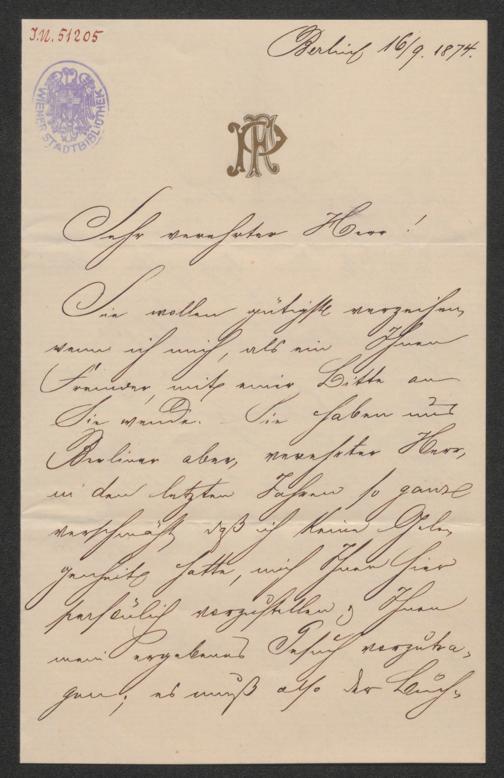 I.N. 51205
Berlin 16/9. 1874.
WIENER STADTBIBLIOTHEK
PR
Sehr verehrter Herr!
Sie wollen gütigst verzeihen,
wenn ich mich, als ein Ihnen
Fremder, mit einer Bitte an
Sie wende. Sie haben uns
Berliner aber, verehrter Herr,
in den letzten Jahren so ganz
verschmäht, daß ich keine Gele-
genheit hatte, mich Ihnen hier
persönlich vorzustellen, Ihnen
mein ergebenes Gesuch vorzutra-
gen; es muß also der Buch-